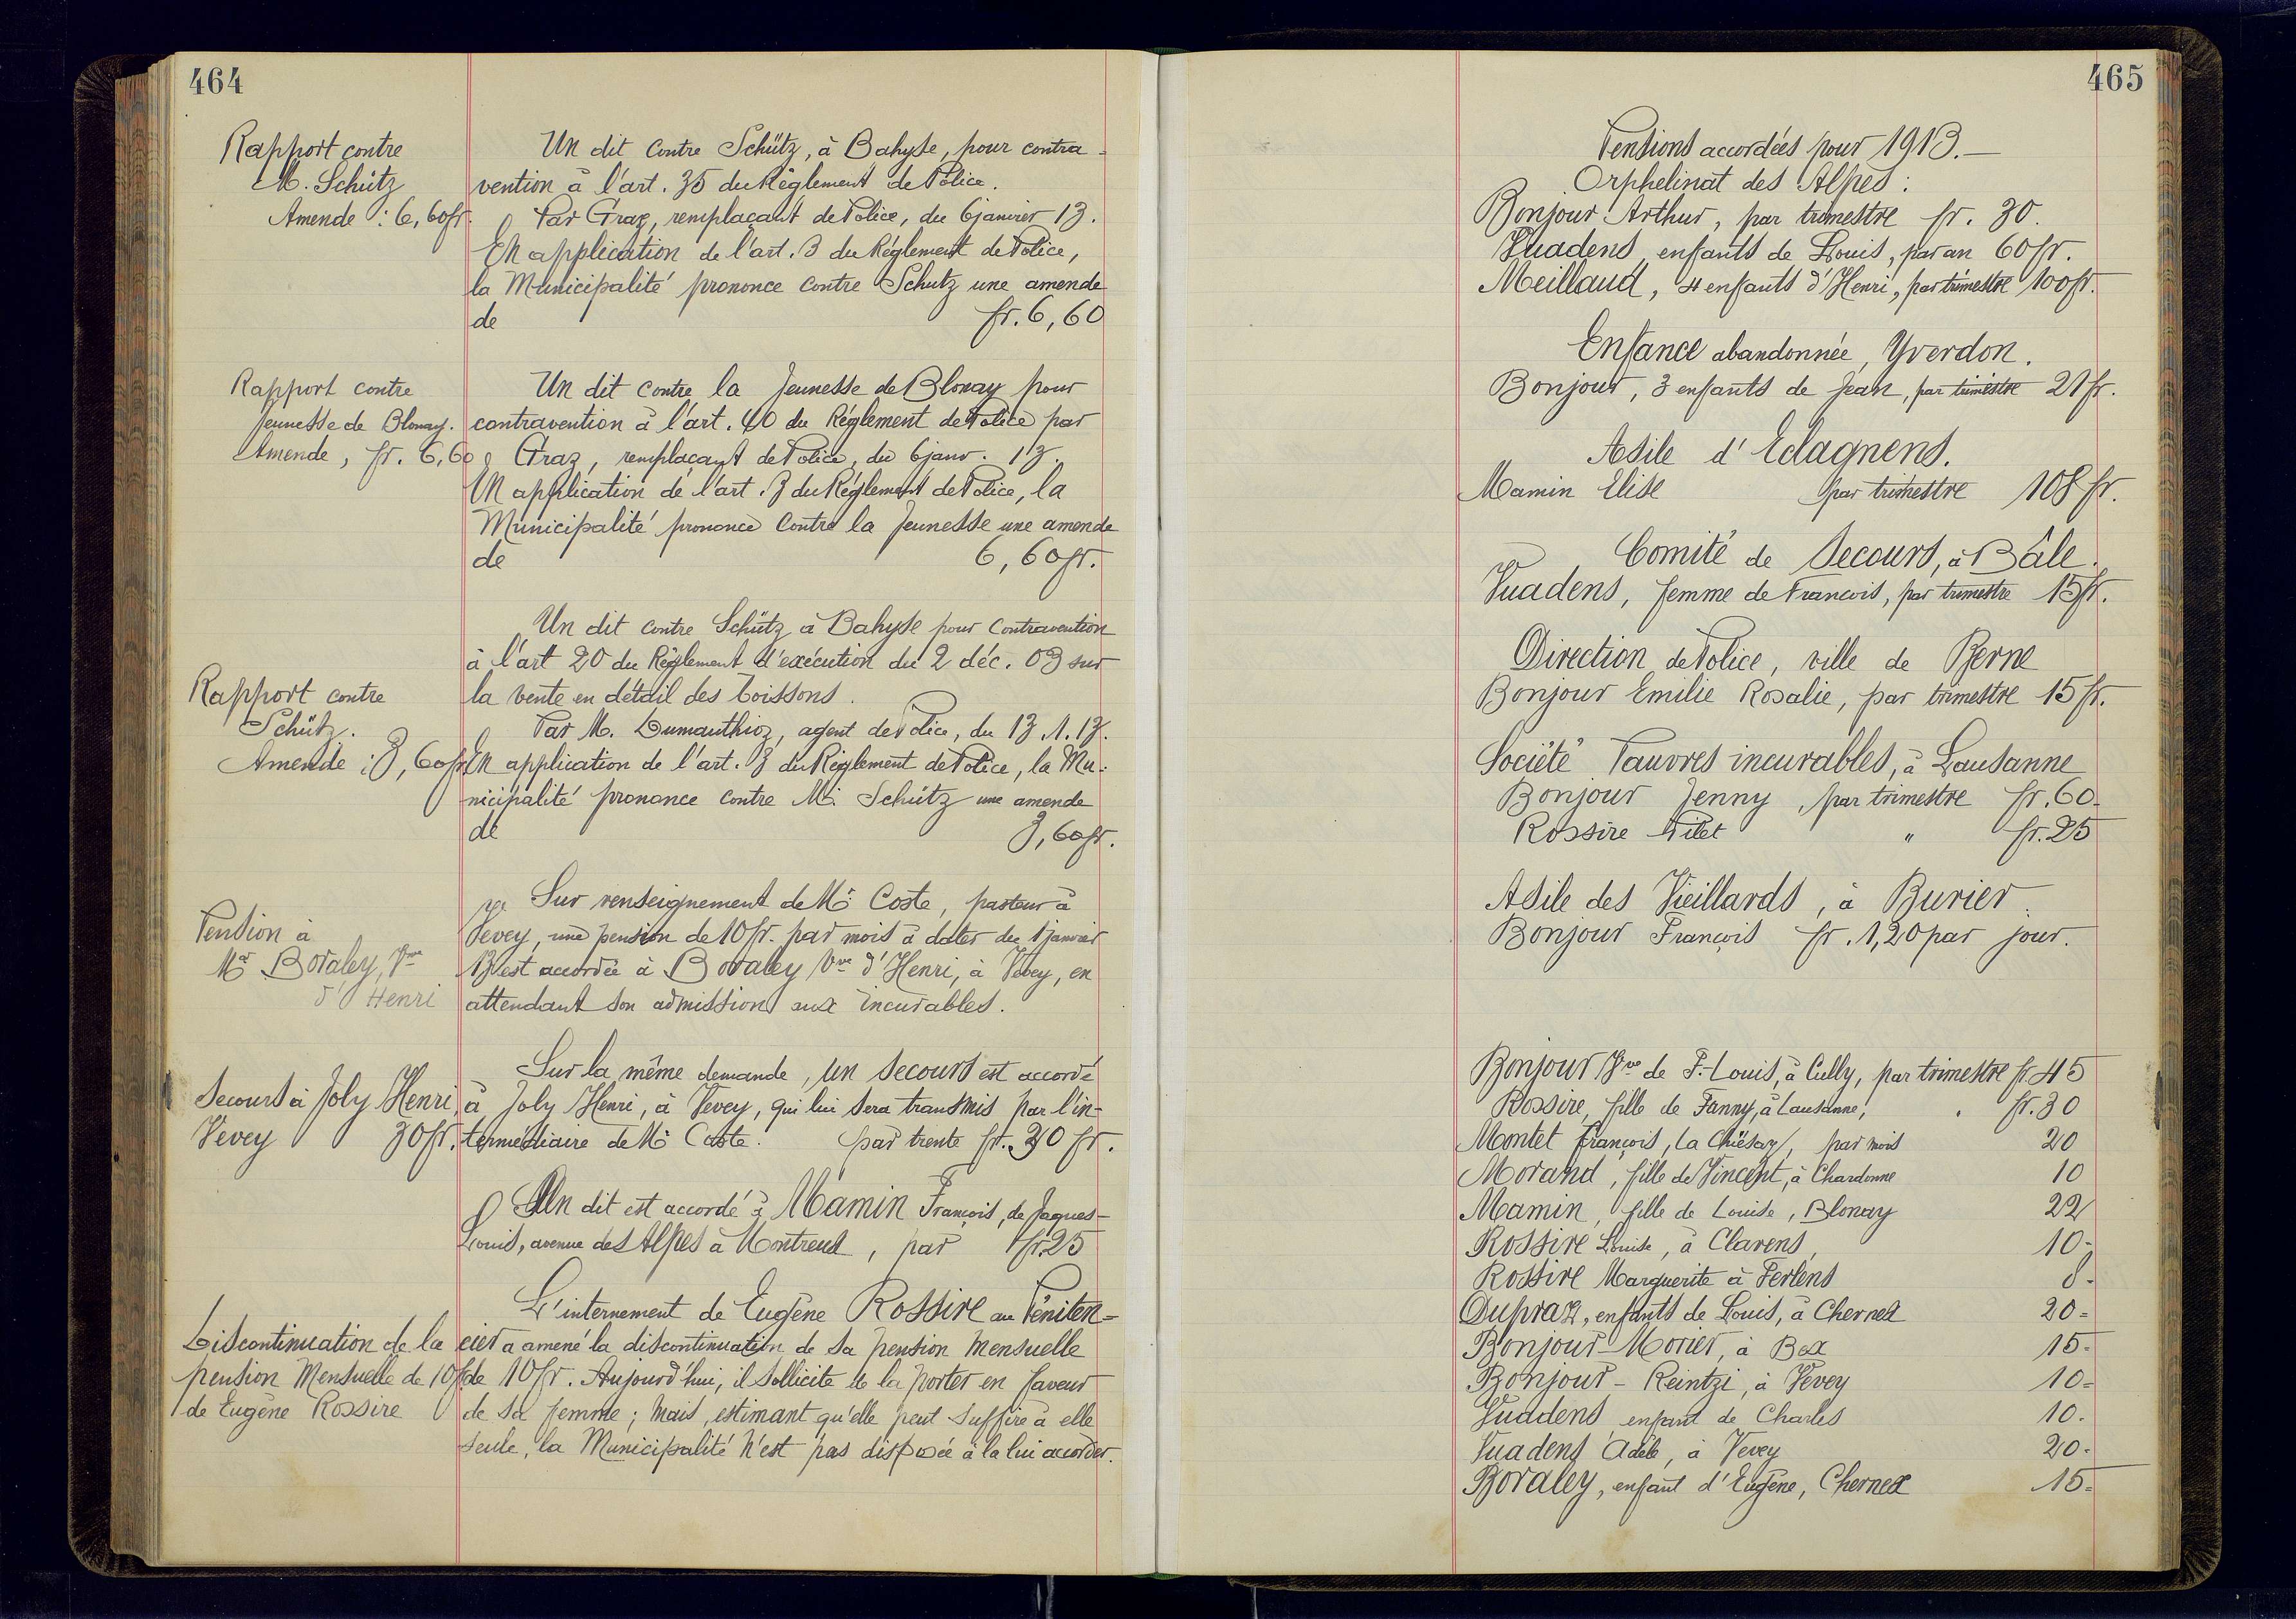 464
Rapport contre
M. Schütz
Amende : 6,60fr.
Un dit contre Schütz, à Bahyse, pour contra-
vention à l'art. 35 du Règlement de Police.
Par Graz, remplaçant de Police, du 6 janvier 13.
En application de l'art. 3 du Règlement de Police,
la Municipalité prononce contre Schutz une amende
de fr. 6,60
Rapport contre
Jeunesse de Blonay.
Amende, fr. 6,60
Un dit contre la Jeunesse de Blonay pour
contravention à l'art. 40 du Règlement de Police par
Graz, remplaçant de Police, du 6 janv. 13.
En application de l'art. 3 du Règlement de Police, la
Municipalité prononce contre la Jeunesse une amende
de 6,60fr.
Rapport contre
Schütz.
Amende : 3,60fr.
Un dit contre Schütz à Bahyse pour contravention
à l'art 20 du Règlement d'exécution du 2 déc. 03 sur
la vente en détail des boissons.
Par M. Dumauthioz, agent de Police, du 13.1.13.
En application de l'art. 3 du Règlement de Police, la Mu-
nicipalité prononce contre M. Schütz une amende
de 3,60fr.
Pension à
Boraley, Vve
d'Henri
Sur renseignement de Mr Coste, pasteur à
Vevey, une pension de 10fr. par mois à dater du 1 janvier
13 est accordée à Boraley Vve d'Henri, à Vevey, en
attendant son admission aux incurables.
Secours à Joly Henri,
Vevey 30fr.
Sur la même demande, un secours est accordé
à Joly Henri, à Vevey, qui lui sera transmis par l'in-
termédiaire de Mr Coste. par trente fr. 30 fr.
Un dit est accordé à Mamin François, de Jaques-
Louis, avenue des Alpes à Montreux, par fr 25
Discontinuation de la
pension Mensuelle de 10fr
de Eugène Rossire
L'internement de Eugène Rossire au Péniten-
cier a amené la discontinuation de sa pension mensuelle
de 10fr. Aujourd'hui, il sollicite de la porter en faveur
de sa femme ; mais, estimant qu'elle peut suffire à elle
seule, la Municipalité n'est pas disposée à la lui accorder.
465
Pensions accordées pour 1913.—
Orphelinat des Alpes :
Bonjour Arthur, par trimestre fr. 30.
Vuadens, enfants de Louis, par an 60fr.
Meillaud, 4 enfants d'Henri, par trimestre 100fr.
Enfance abandonnée, Yverdon.
Bonjour, 3 enfants de Jean, par trimestre 21fr.
Asile d'Eclagnens.
Mamin Elise par trimestre 108 fr.
Comité de Secours, à Bâle.
Vuadens, femme de François, par trimestre 15fr.
Direction de Police, ville de Berne
Bonjour Emilie Rosalie, par trimestre 15 fr.
Société Pauvres incurables, à Lausanne
Bonjour Jenny, par trimestre fr. 60-
Rossire Pilet " fr. 25
Asile des Vieillards, à Burier.
Bonjour François fr. 1,20 par jour.
Bonjour Vve de F.-Louis, à Cully, par trimestre fr. 45
Rossire, fille de Fanny, à Lausanne, fr. 30
Montet François, La Chiésaz, par mois 20
Morand, fille de Vincent, à Chardonne 10
Mamin, fille de Louise, Blonay 22
Rossire Louise, à Clarens, 10-
Rossire Marguerite à Ferlens 8-
Dupraz, enfants de Louis, à Chernex 20-
Bonjour-Morier, à Bex 15-
Bonjour-Reintzi, à Vevey 10-
Vuadens enfant de Charles 10-
Vuadens Adèle, à Vevey 20-
Boraley, enfant d'Eugène, Chernex 15-